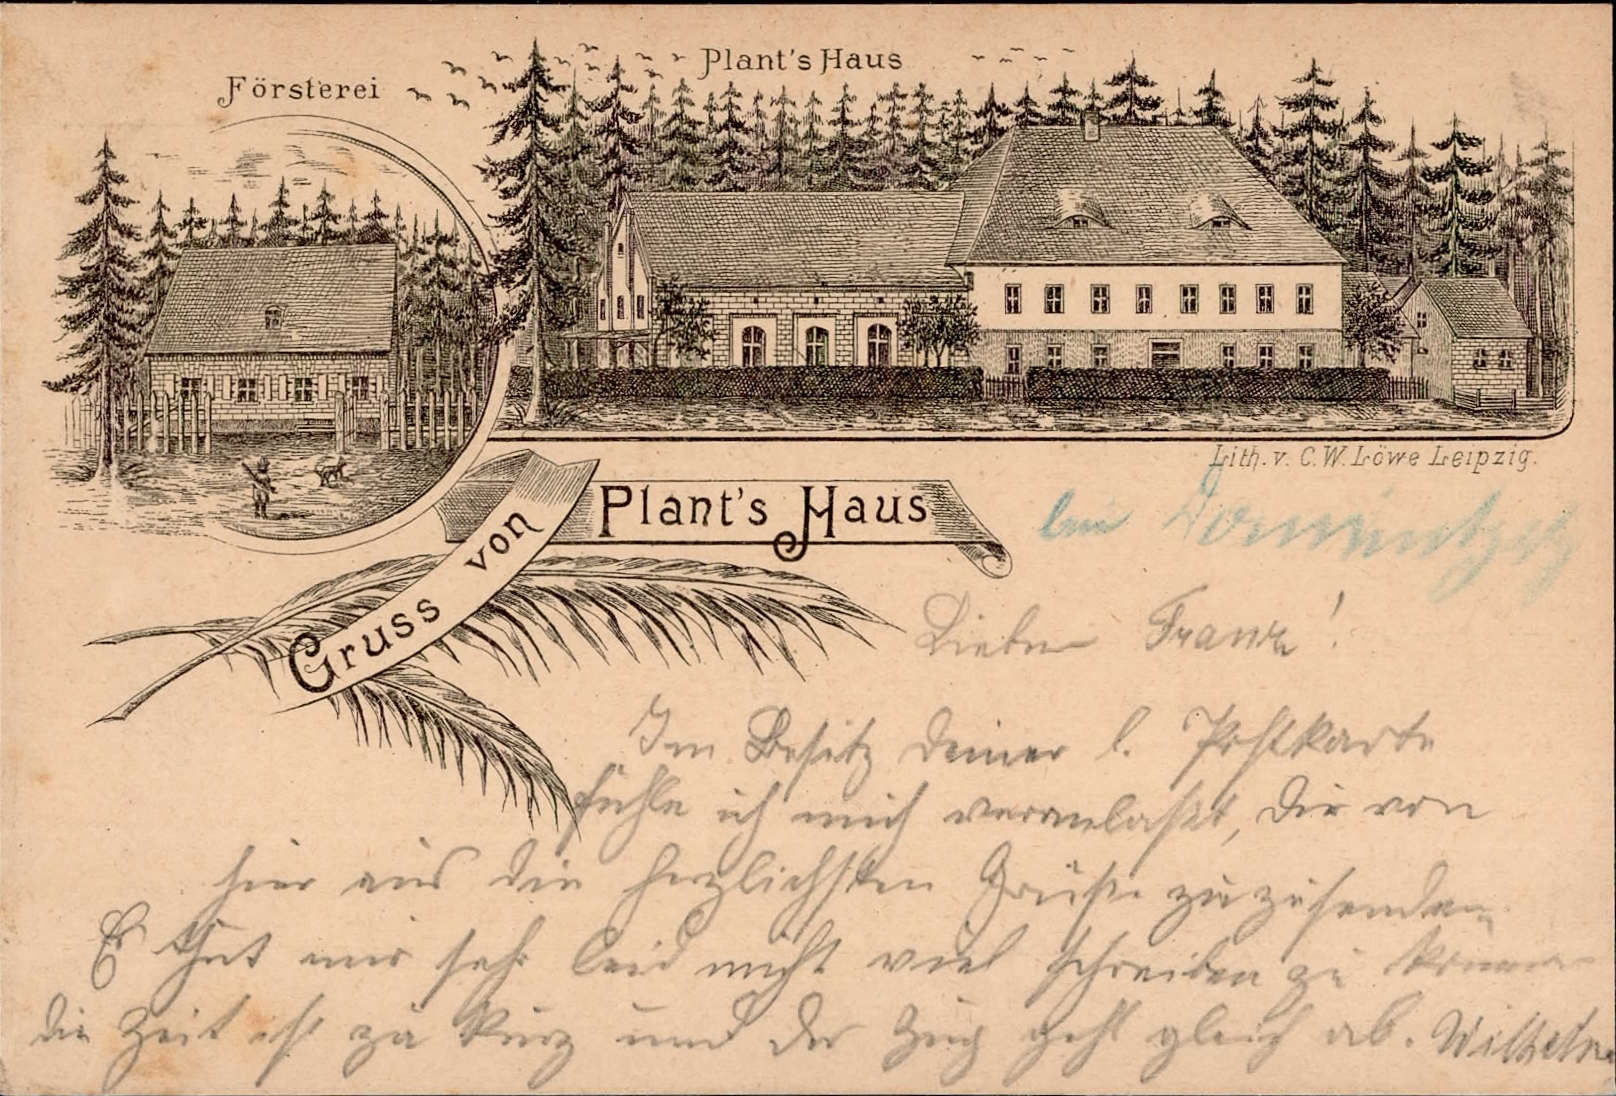 Försterei
Plant's Haus
Lith. v. C. W. Löwe Leipzig.
Gruss von Plant's Haus
bei
Lieber Franz!
Im Besitz deiner l. Postkarte
fühle ich mich veranlaßt, dir von
hier aus die herzlichsten Grüße zuzusenden
Es thut mir sehr leid nicht viel schreiben zu können
die Zeit ist zu kurz und der Zug geht gleich ab. Wilhelm